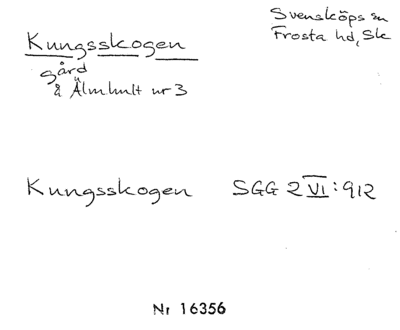 Kungsskogen
gård
å Älmhult nr 3
Svensköps sn
Frosta hd, Sk
Kungsskogen SGG 2 VI:912
Nr 16356